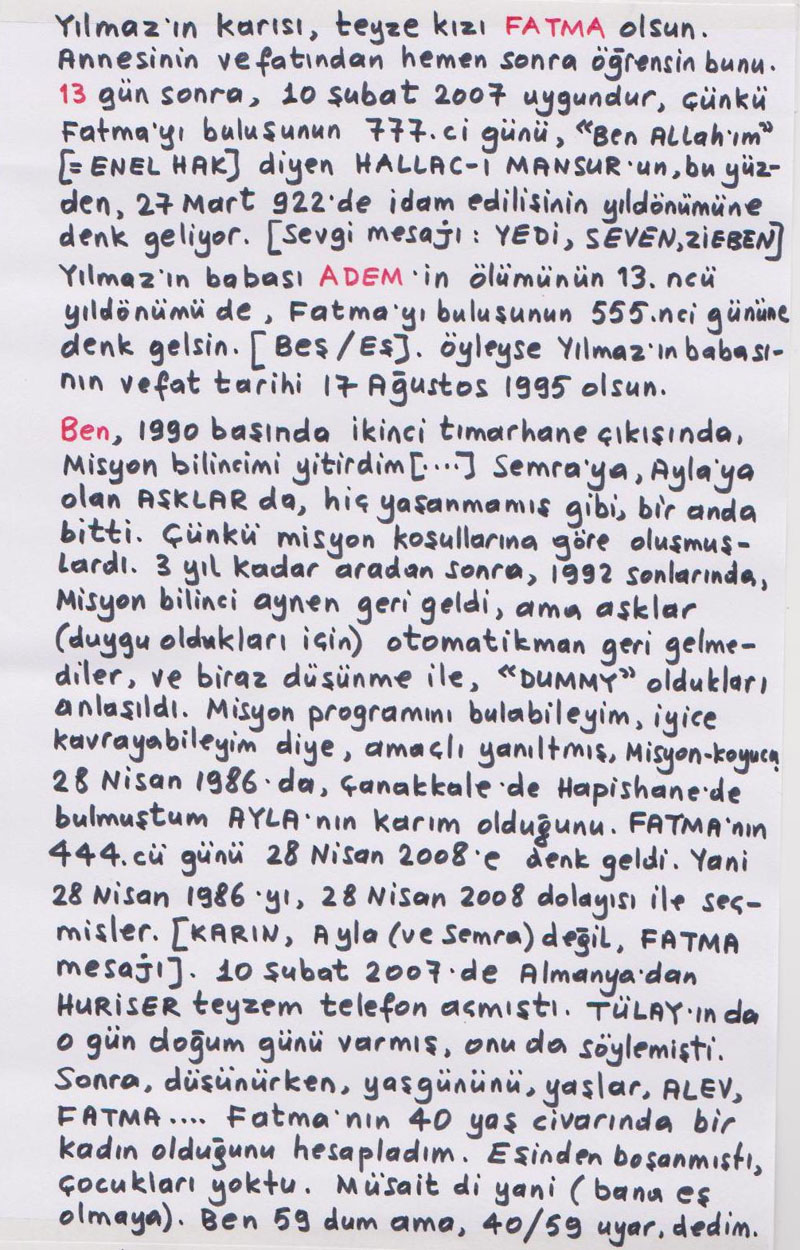 Yılmaz'ın karısı, teyze kızı FATMA olsun.
Annesinin vefatından hemen sonra öğrensin bunu.
13 gün sonra, 10 şubat 2007 uygundur, çünkü
Fatma'yı buluşunun 777.ci günü, “Ben ALLah'ım”
[= ENEL HAK] diyen HALLAC-I MANSUR'un, bu yüz-
den, 27 Mart 922'de idam edilişinin yıldönümüne
denk geliyor. [Sevgi mesajı : YEDİ, SEVEN, ZİEBEN]
Yılmaz'ın babası ADEM'in ölümünün 13. ncü
yıldönümü de, Fatma'yı buluşunun 555.nci gününe
denk gelsin. [Beş/Eş]. öyleyse Yılmaz'ın babası-
nın vefat tarihi 17 Ağustos 1995 olsun.
Ben, 1990 başında ikinci tımarhane çıkışında,
Misyon bilincimi yitirdim [....] Semra'ya, Ayla'ya
olan AŞKLAR da, hiç yaşanmamış gibi, bir anda
bitti. Çünkü misyon koşullarına göre oluşmuş-
Lardı. 3 yıL kadar aradan sonra, 1992 sonlarında,
Misyon bilinci aynen geri geldi, ama aşklar
(duygu oldukları için) otomatikman geri gelme-
diler, ve biraz düşünme ile, “DUMMY” oldukları
anlaşıldı. Misyon programını bulabileyim, iyice
kavrayabileyim diye, amaçlı yanıltmış, Misyon-koyucu
28 Nisan 1986'da, Çanakkale'de Hapishane'de
bulmuştum AYLA'nın karım olduğunu. FATMA'nın
444.cü günü 28 Nisan 2008'e denk geldi. Yani
28 Nisan 1986'yı, 28 Nisan 2008 dolayısı ile seç-
mişler. [KARIN, Ayla (ve Semra) değil, FATMA
mesajı]. 10 şubat 2007'de Almanya'dan
HURİSER teyzem telefon açmıştı. TÜLAY'ın da
o gün doğum günü varmış, onu da söylemişti.
Sonra, düşünürken, yaşgününü, yaşlar, ALEV,
FATMA.... Fatma'nın 40 yaş civarında bir
kadın olduğunu hesapladım. Eşinden boşanmıştı,
çocukları yoktu. Müsait di yani (bana eş
olmaya). Ben 59 dum ama, 40/59 uyar, dedim.